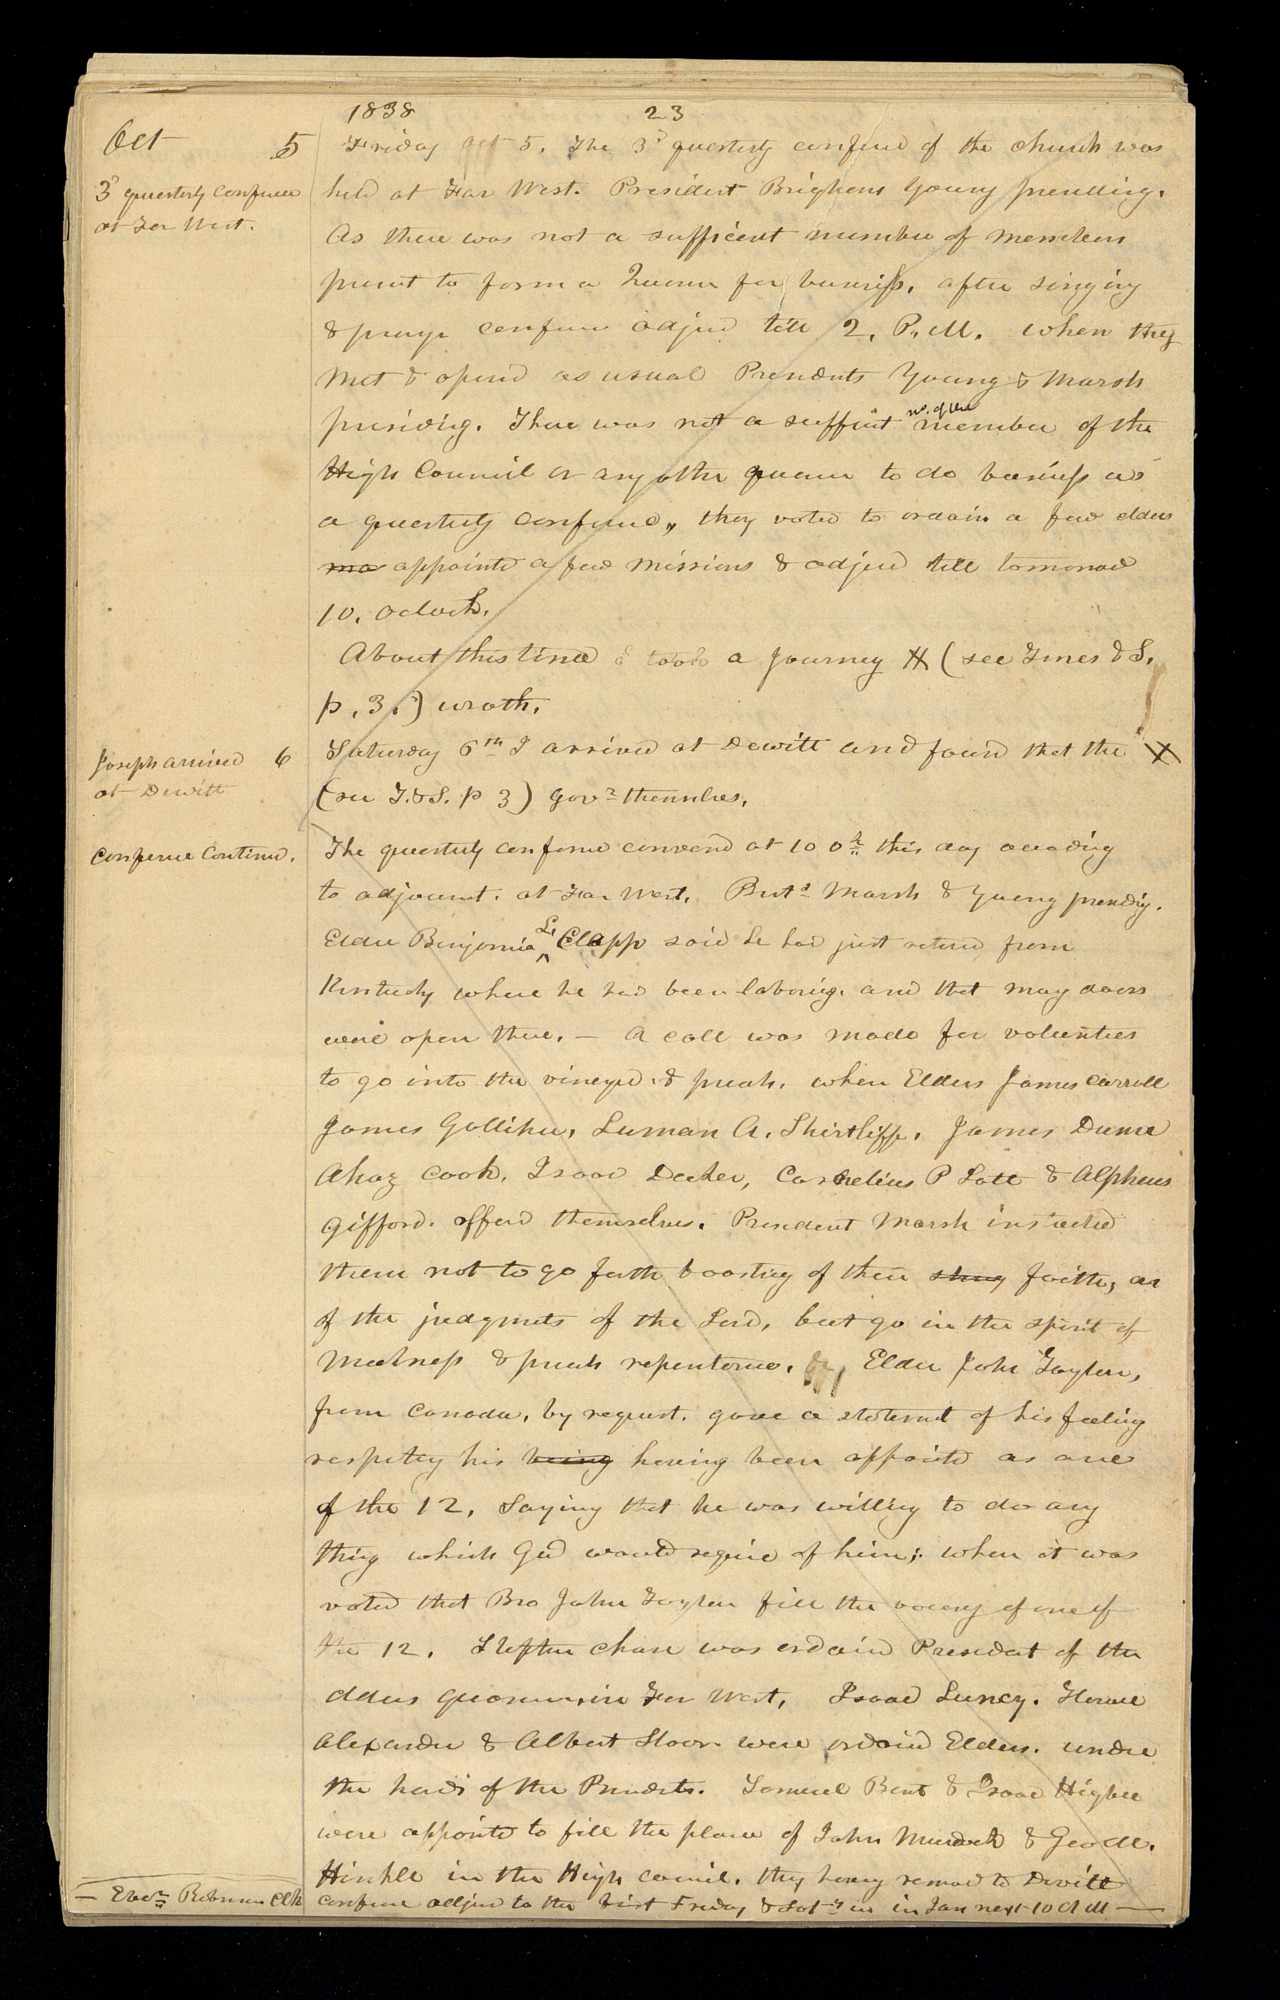 1838 23
Oct 5 Friday Oct 5. The 3d quarterly confrenc of the church was
3d quarterly confrnce held at Far West. President Brigham Young presiding.
at Far West. As there was not a sufficient number of members
present to form a Quorum for business, after singing
& prayr confrnce adjrd till 2, P.M. when they
met & opend as usual Presidents Young & Marsh
presiding. There was not a suffint no. of the member of the
High Council or any other quorum to do business as
a quarterly confrence, they voted to ordain a few elders
ma appointd a few missions & adjrd till tomorrow
10, oclock.
About this time I took a journey # (see Times & S.
p. 3.) wrath.
Joseph arrived 6 Saturday 6th I arrived at Dewitt and found that the X
at Dewitt (see T.&S. p 3) govn themselves.
Confrence Continud. The quarterly confrnce convend at 10 oclk this day according
to adjournmt. at Far West. Prests Marsh & Young presdig.
Elder Benjamin L. Clapp said he had just returnd from
Kentucky where he had been laboring. and that many doors
were open there. — A call was made for volunters
to go into the vineyrd & preach. when Elders James Carroll
James Gallihr, Luman A. Shirtliff, James Dunn
Ahaz Cook, Isaac Decker, Cornelius P Lott & Alpheus
Gifford. offerd themselves. President Marsh instructed
them not to go forth boasting of their strng faith, or
of the judgmnts of the Lord, but go in the spirit of
Meekness & preach repentance. Elder John Taylor,
from Canada, by request. gave a statemnt of his feeling
respectng his being having been appointd as one
of the 12, Saying that he was willing to do any
thing which God would require of him; when it was
voted that Bro John Taylor fill the vacancy of one of
the 12. Stephen Chase was ordaind President of the
elders quorum in Far West, Isaac Laney. Horace
Alexander & Albert Sloan were ordaind Elders. under
the hands of the Presidnts. Samuel Bent & Isaac Higbee
were appointd to fill the place of John Murdock & Geo M.
Hinkle in the High council. they having removd to Dewitt
— Ebenr Robinson Clk confrnce adjrd to the first Friday & Saty in in Jan next 10 A M —